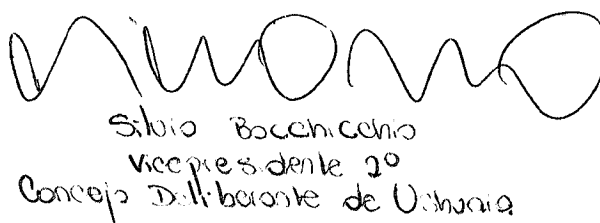 Silvio Bocchicchio
Vicepresidente 2º
Concejo Deliberante de Ushuaia